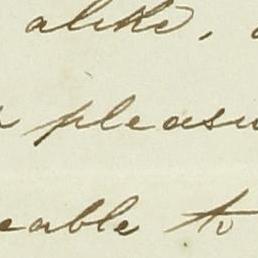 alike,
pleasu
eable to